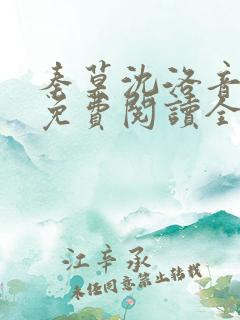 秦草沈洛音
免費閱讀全
江辛承
未经同意禁止转载